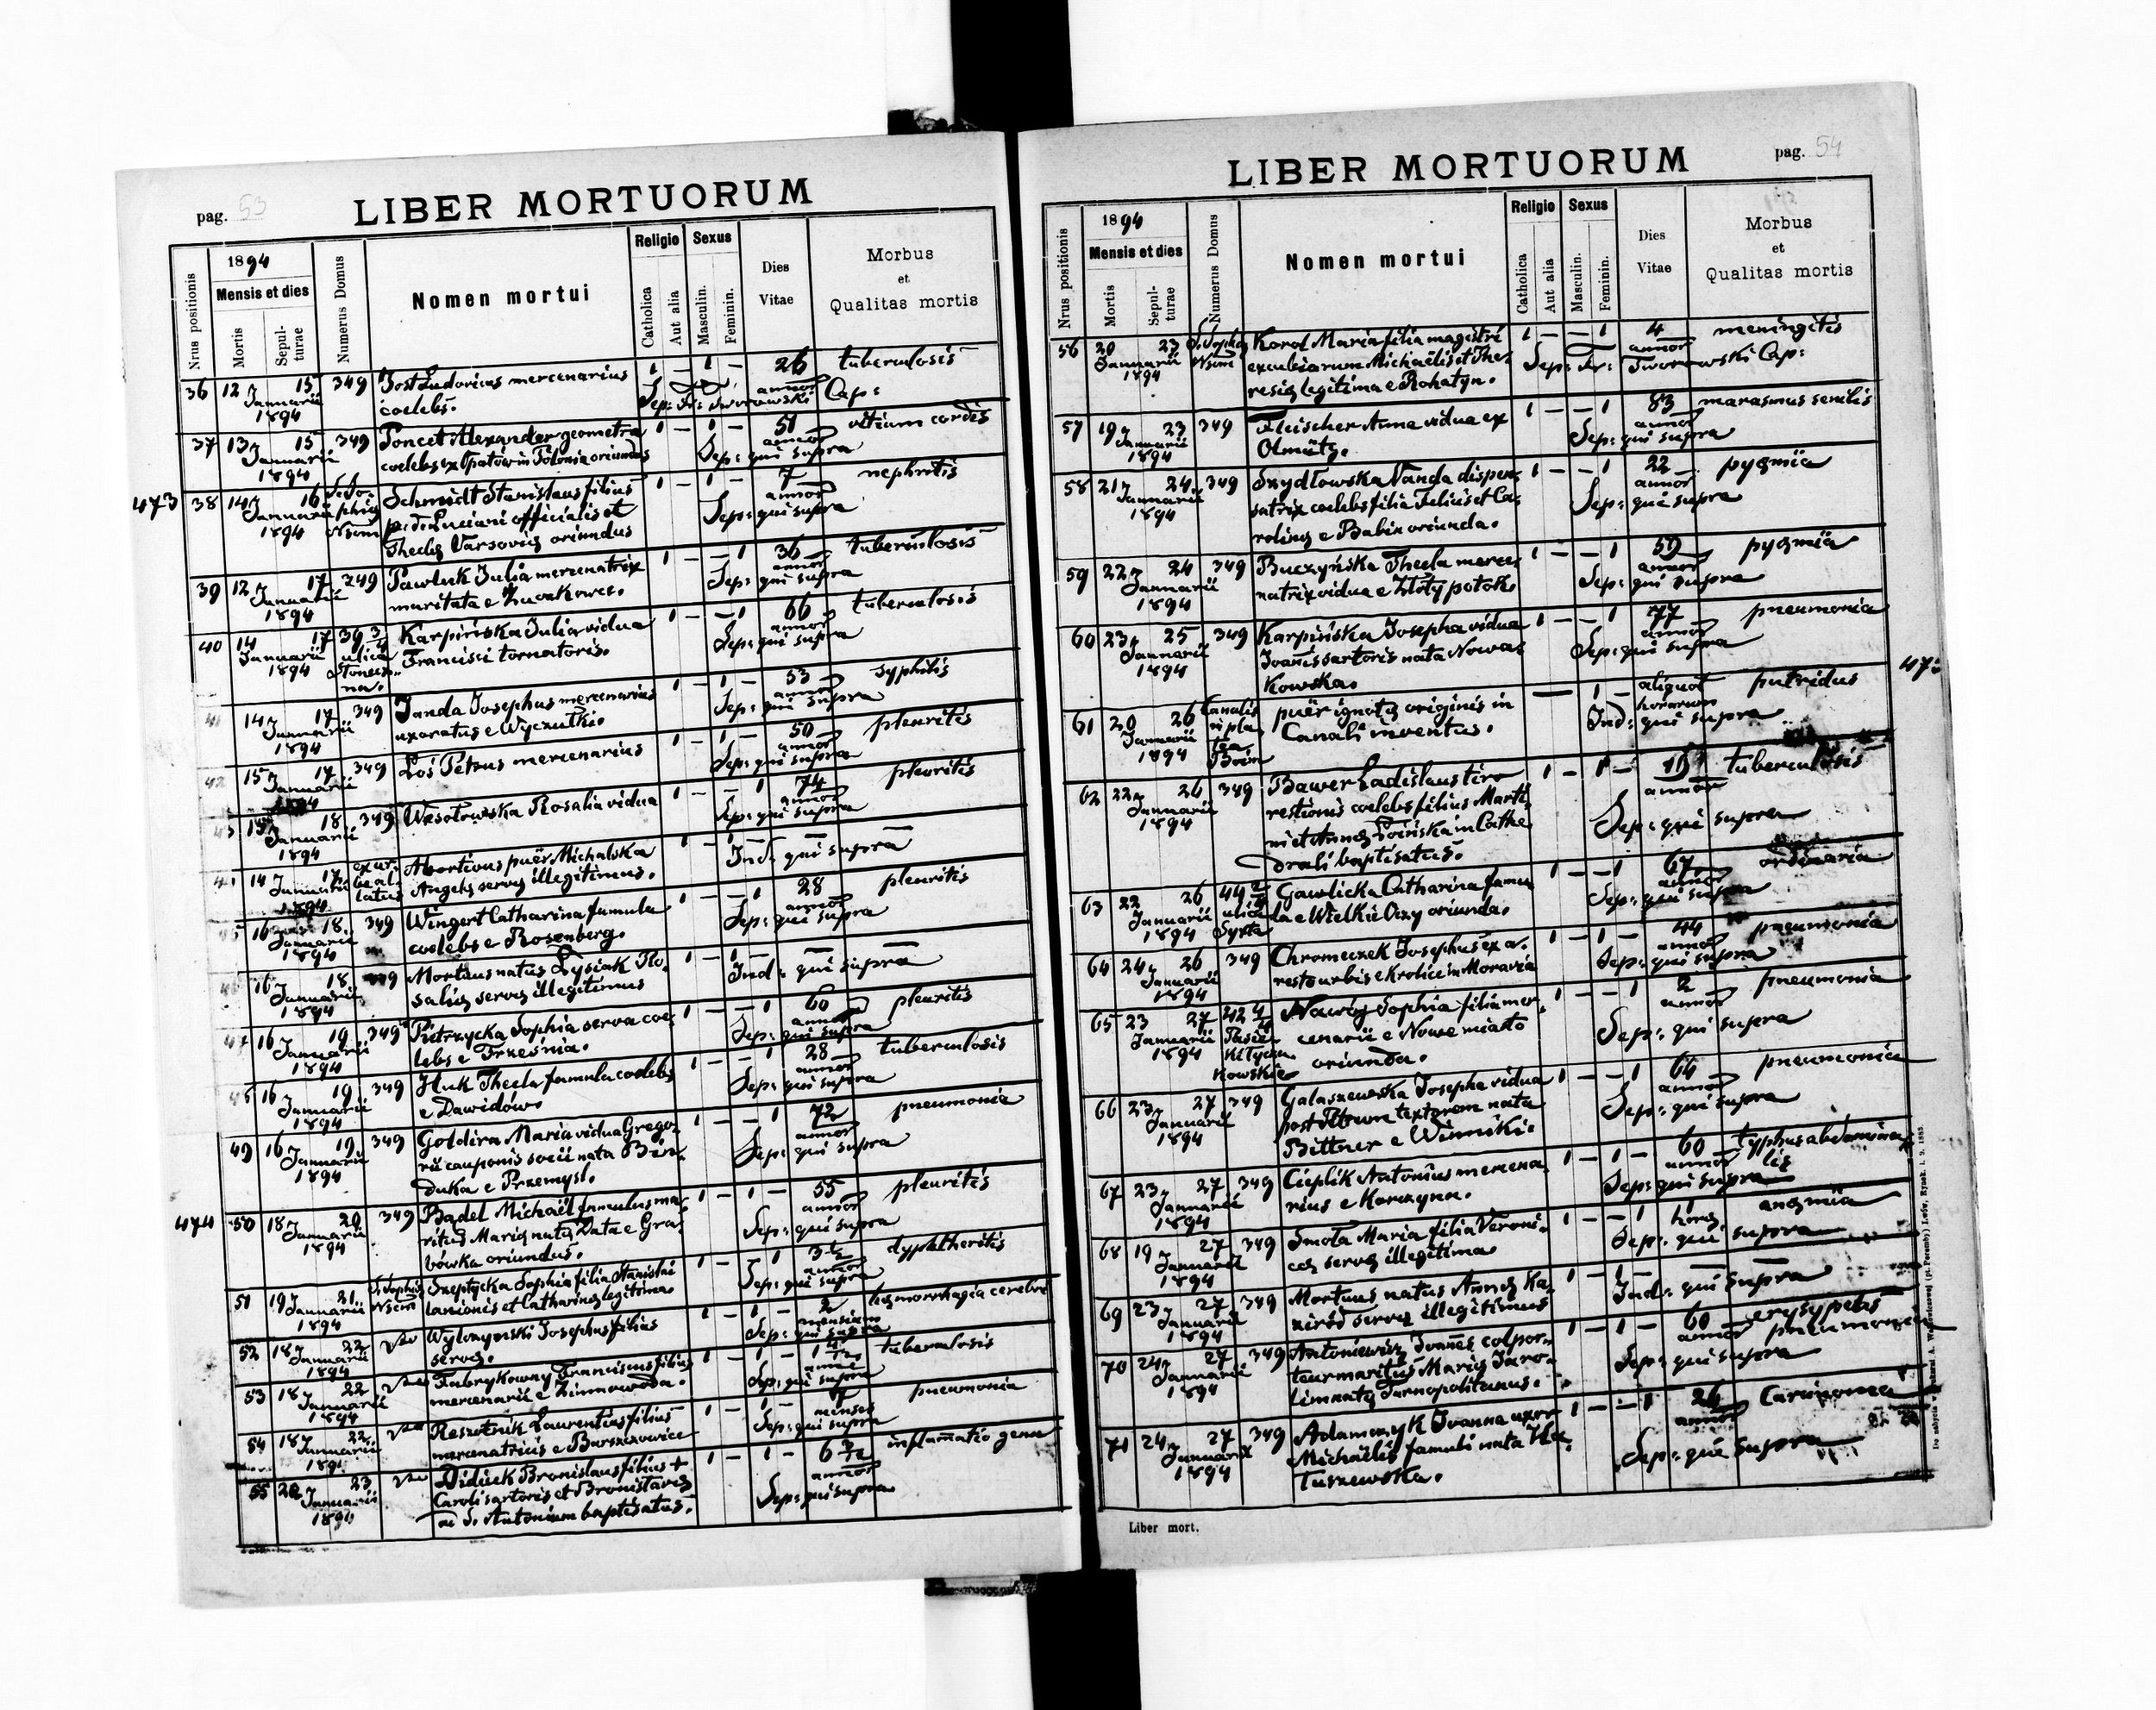 pag. 53
LIBER MORTUORUM
Nrus positionis
1894
Mensis et dies
Mortis
Sepul-
turae
Numerus Domus
Nomen mortui
Religio
Catholica
Aut alia
Sexus
Masculin.
Feminin.
Dies
Vitae
Morbus
et
Qualitas mortis
36 12 Januarii 15 1894 349 Jost Ludovicus mercenarius 1 — 1 — 26 annor tuberculosis
coelebs. Sep: Fr: Tworowski Cap:
37 13 Januarii 15 1894 349 Poncet Alexander geometra 1 — 1 — 51 annor vitium cordis
coelebs ex Opatów in Polonia oriundus Sep: qui supra
473
38 14 Januarii 16 1894 Schmidt Stanislaus filius 1 — 1 — 7 annor nephritis
Luciani officialis et Sep: qui supra
Theclę Varsovię oriundus
39 12 Januarii 17 1894 349 Pawluk Julia mercenatrix 1 — — 1 36 annor tuberculosis
maritata e Sep: qui supra
40 14 Januarii 17 1894 39 3/4 ulica Słonecz-
na. Karpińska Julia vidua 1 — — 1 66 annor tuberculosis
Francisci tornatoris. Sep: qui supra
41 14 Januarii 17 1894 349 Janda Josephus mercenarius 1 — 1 — 53 annor syphilis
uxoratus e Wyczułki. Sep: qui supra
42 15 Januarii 17 349 Łoś Petrus mercenarius 1 — 1 — 50 annor pleuritis
Sep: qui supra
43 15 Januarii 18 1894 349 Wesołowska Rosalia vidua 1 — — 1 74 annor pleuritis
Sep: qui supra
44 14 Januarii 17 1894 Abortivus puer Michalska 1 — 1 — —
Angelę servę illegitimus. Ind: qui supra
45 16 Januarii 18 1894 349 Wingert Catharina famula 1 — — 1 28 annor pleuritis
coelebs e Rosenberg. Sep: qui supra
46 16 Januarii 18 1894 349 Mortuus natus Łysiak Ro-
salię servę illegitimus 1 — 1 — Ind: qui supra
47 16 Januarii 19 1894 349 Pietrzycka Sophia serva coe-
lebs e Trześnia. 1 — — 1 60 annor pleuritis
Sep: qui supra
48 16 Januarii 19 1894 349 Huk Thecla famula coelebs 1 — — 1 28 annor tuberculosis
e Dawidów. Sep: qui supra
49 16 Januarii 19 1894 349 Goldira Maria vidua Grego-
rii cauponis socii nata Bin-
duka e Przemysl. 1 — — 1 72 annor pneumonia
Sep: qui supra
474
50 18 Januarii 20 1894 349 Badel Michaël famulus ma-
ritus Marię natę Data e Gra-
bówka oriundus. 1 — 1 — 55 annor pleuritis
Sep: qui supra
51 19 Januarii 21 1894 S. Sophię Nsem Szeptycka Sophia filia Stanislai
lanionis et Catharinę legitima. 1 — — 1 3 1/2 annor dyphtheritis
Sep: qui supra
52 18 Januarii 22 1894 Josephus filius
servę. 1 — 1 — 2 mensium hęmorrhagia cerebri
Sep: qui supra
53 18 Januarii 22 1894 Fabrykowny Franciscus filius
mercenarii e Zimnowoda. 1 — 1 — tuberculosis
Sep: qui supra
54 18 Januarii 22 Reszetnik Laurentius filius
mercenatricis e Barszczowice 1 — 1 — menses pneumonia
Sep: qui supra
55 20 Januarii 23 Didiuk Bronislaus filius +
Caroli sartoris et Bronislavę
ad S. Antonium baptisatus. 1 — 1 — annor
Sep: qui supra
pag. 54
LIBER MORTUORUM
Nrus positionis
1894
Mensis et dies
Mortis
Sepul-
turae
Numerus Domus
Nomen mortui
Religio
Catholica
Aut alia
Sexus
Masculin.
Feminin.
Dies
Vitae
Morbus
et
Qualitas mortis
56 20 Januarii 23 1894 S. Sophię Nsem Korol Maria filia magistri
excubiarum Michaëlis et The-
resię legitima e Rohatyn. 1 — — 1 4 annor meningitis
Sep: Fr: Tworowski Cap:
57 19 Januarii 23 1894 349 Fleischer Anna vidua ex
Olmütz. 1 — — 1 83 annor marasmus senilis
Sep: qui supra
58 21 Januarii 24 1894 349 Szydłowska Vanda dispen-
satrix coelebs filia Julii et Ca-
rolinę e Babin oriunda. 1 — — 1 22 annor pyęmia
Sep: qui supra
59 22 Januarii 24 1894 349 Buczyńska Thecla merce-
natrix vidua e Złoty potok. 1 — — 1 59 annor pyęmia
Sep: qui supra
60 23 Januarii 25 1894 349 Karpińska Josepha vidua
Joannis sartoris nata Nowa-
kowska. 1 — — 1 77 annor pneumonia
Sep: qui supra
61 20 Januarii 26 1894 Canalis in pla-
tea Boim puer ignotę originis in
Canali inventus. — 1 — aliquot horarum putridus
Ind: qui supra
62 22 Januarii 26 1894 349 Bawer Ladislaus tiro
restionis coelebs filius Marti-
ni et Annę in Cathe-
drali baptisatus. 1 — 1 — annor tuberculosis
Sep: qui supra
63 22 Januarii 26 1894 44 2/4 ulica Syxta Gawlicka Catharina famu-
la e Wielkie Oczy oriunda. 1 — — 1 67 annor ordinaria
Sep: qui supra
64 24 Januarii 26 1894 349 Chromeczek Josephus ex a-
resto urbis e Krolice in Moravia 1 — 1 — 44 annor pneumonia
Sep: qui supra
65 23 Januarii 27 1894 Nawój Sophia filia mer-
cenarii e Nowe miasto
oriunda. 1 — — 1 2 annor pneumonia
Sep: qui supra
66 23 Januarii 27 1894 349 Galaszewska Josepha vidua
post textorem nata
Bittner e Winniki. 1 — — 1 64 annor pneumonia
Sep: qui supra
67 23 Januarii 27 1894 349 Cieplik Antonius mercena-
rius e Korczyna. 1 — 1 — 60 annor typhus abdomina-
lis
Sep: qui supra
68 19 Januarii 27 1894 349 Smoła Maria filia Veroni-
cę servę illegitima. 1 — — 1 1 horę anęmia
Sep: qui supra
69 23 Januarii 27 1894 349 Mortuus natus Annę Ka-
ziród servę illegitimus 1 — 1 —
Ind: qui supra
70 24 Januarii 27 1894 349 Antoniewicz Joannes colpor-
teur maritus Marię Jaro-
lim natę Tarnopolitanus. 1 — 1 — 60 annor erysypelis
pneumonia
Sep: qui supra
71 24 Januarii 27 1894 349 Adamczyk Joanna uxor
Michaëlis famuli nata Ha-
luszewska. 1 — — 1 26 annor Carcinoma
Sep: qui supra
Liber mort.